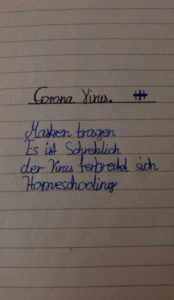 Corona Virus.
Masken tragen
Es ist Schreklich
der Virus ferbreitet sich
Homeschooling